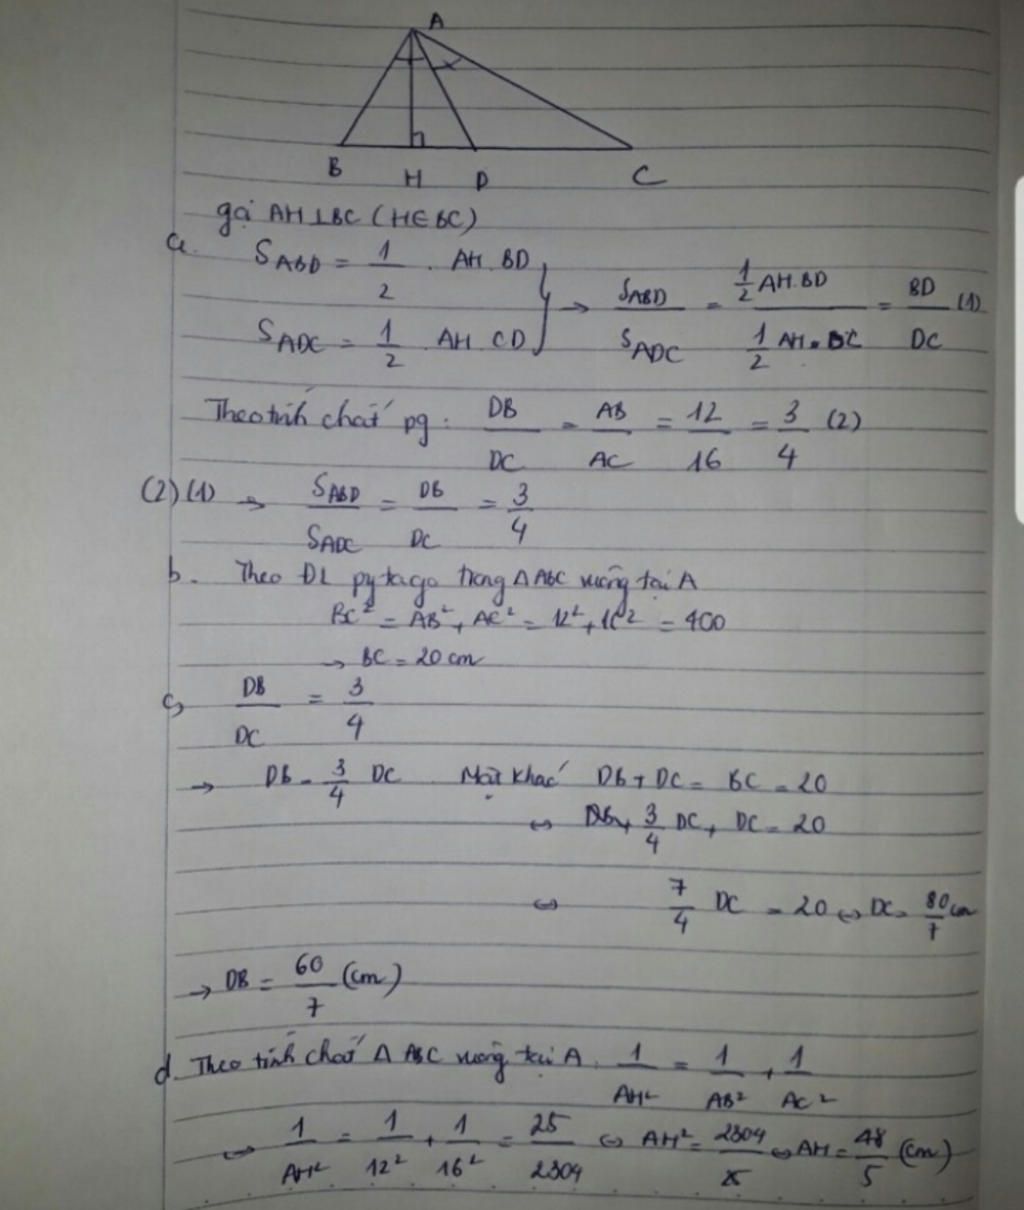 A
B H D C
gọi AH⊥BC (H∈BC)
a. S_ABD = 1/2 . AH.BD
S_ADC = 1/2 . AH.CD } → S_ABD/S_ADC = (1/2 AH.BD)/(1/2 AH.DC) = BD/DC (1)
Theo tính chất pg: DB/DC = AB/AC = 12/16 = 3/4 (2)
(2)(1) → S_ABD/S_ADC = DB/DC = 3/4
b. Theo ĐL pytago trong ΔABC vuông tại A
BC² = AB² + AC² = 12² + 16² = 400
→ BC = 20 cm
c, DB/DC = 3/4
→ DB = 3/4 DC Mặt khác DB + DC = BC = 20
⇔ 3/4 DC + DC = 20
⇔ 7/4 DC = 20 ⇔ DC = 80/7 cm
→ DB = 60/7 (cm)
d. Theo tính chất Δ ABC vuông tại A. 1/AH² = 1/AB² + 1/AC²
⇔ 1/AH² = 1/12² + 1/16² = 25/2304 ⇔ AH² = 2304/ ⇔ AH = 48/5 (cm)